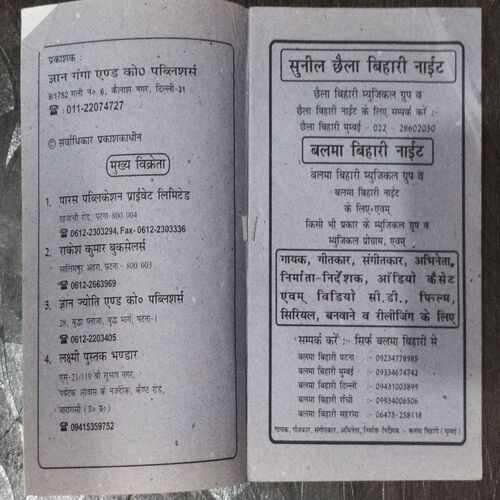 प्रकाशक :
ज्ञान गंगा एण्ड को० पब्लिशर्स
9/1752 गली नं० 6, कैलाश नगर, दिल्ली-31
☎ : 011-22074727
© सर्वाधिकार प्रकाशकाधीन
मुख्य विक्रेता
1. पारस पब्लिकेशन प्राईवेट लिमिटेड
खजांची रोड, पटना-800 004
☎ 0612-2303294, Fax- 0612-2303336
2. राकेश कुमार बुकसेलर्स
सालिमपुर अहरा, पटना - 800 003
☎ 0612-2663969
3. ज्ञान ज्योति एण्ड को० पब्लिशर्स
28, बुद्धा प्लाजा, बुद्ध मार्ग, पटना-1
☎ 0612-2203405
4. लक्ष्मी पुस्तक भण्डार
एम-21/119 बी सुभाष नगर,
पर्यटक आवास के नजदीक, केण्ट रोड,
वाराणसी (उ० प्र०)
☎ 09415359752
सुनील छैला बिहारी नाईट
छैला बिहारी म्युजिकल ग्रुप व
छैला बिहारी नाईट के लिए सम्पर्क करें :-
छैला बिहारी मुम्बई - 022 - 28602030
बलमा बिहारी नाईट
बलमा बिहारी म्युजिकल ग्रुप व
बलमा बिहारी नाईट
के लिए एवम्
किसी भी प्रकार के म्युजिकल ग्रुप व
म्युजिकल प्रोग्राम, एवम्
गायक, गीतकार, संगीतकार, अभिनेता,
निर्माता-निर्देशक, ऑडियो कैसेट
एवम् विडियो सी.डी., फिल्म,
सिरियल, बनवाने व रीलीजिंग के लिए
सम्पर्क करें :- सिर्फ बलमा बिहारी से
बलमा बिहारी पटना :- 09234778985
बलमा बिहारी मुम्बई :- 09334674742
बलमा बिहारी दिल्ली :- 09431003899
बलमा बिहारी राँची :- 09934006506
बलमा बिहारी सहरसा :- 06475-258118
गायक, गीतकार, संगीतकार, अभिनेता, निर्माता-निर्देशक :- बलमा बिहारी (मुम्बई)